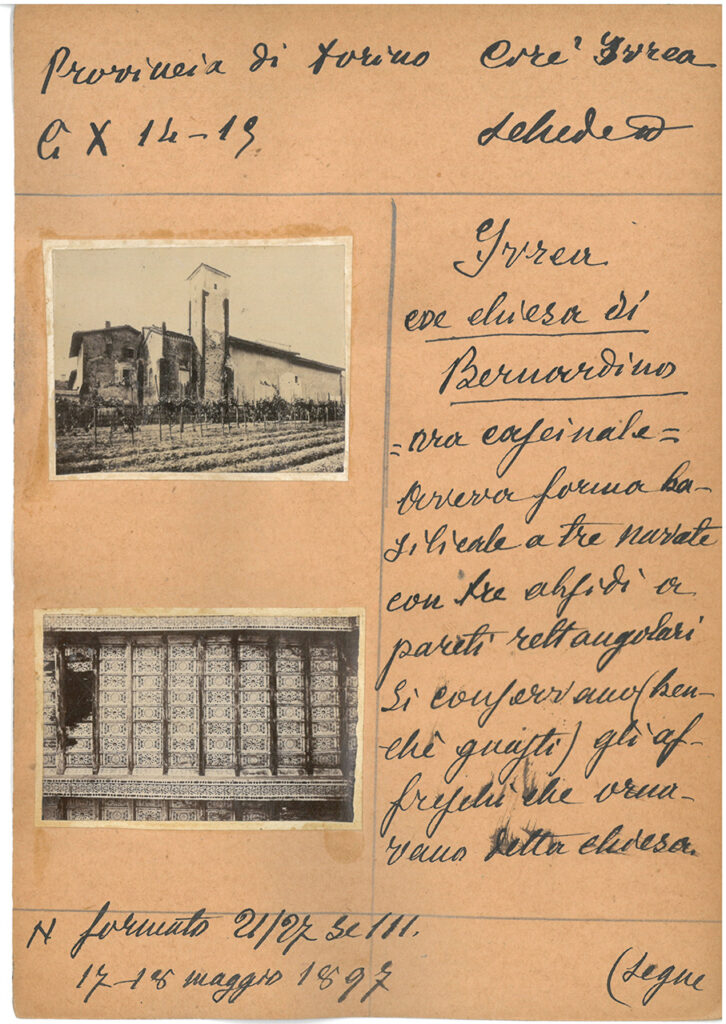 Provincia di Torino Cire' Ivrea
C X 14-19
schede
Ivrea
chiesa di
Bernardino
=ora cascinale=
Aveva forma ba-
silicale a tre navate
con tre absidi a
pareti rettangolari
si conservano (ben-
chè guasti) gli af-
freschi che orna-
vano detta chiesa.
N formato 21/27 Se III.
17-18 maggio 1897
(segue